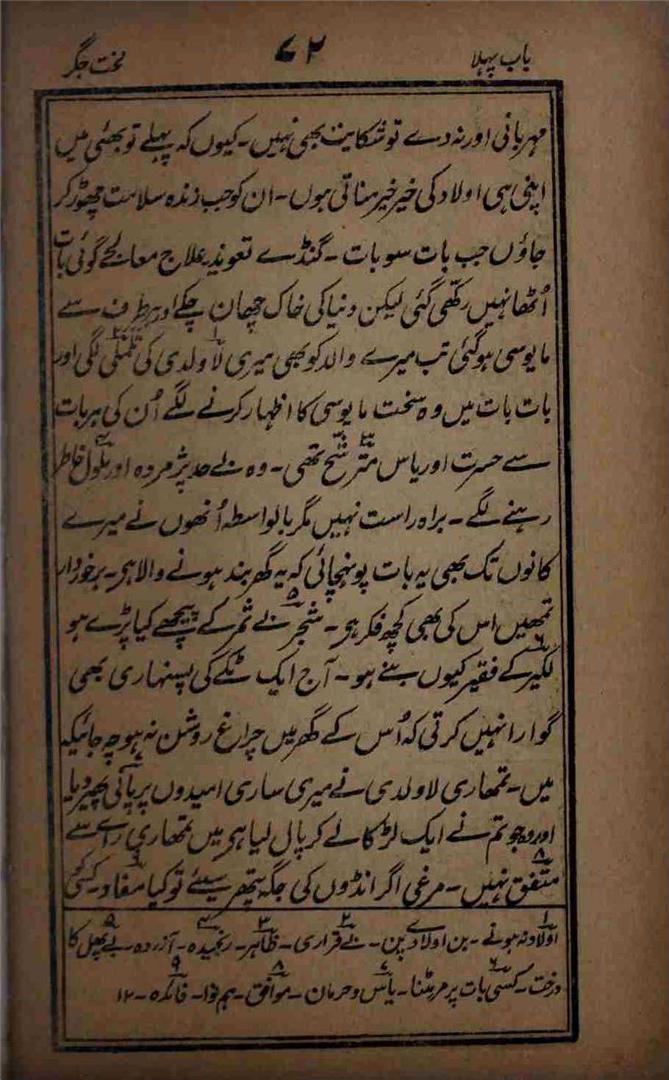 باب پہلا
۷۲
لخت جگر
مہربانی اور نہ دے تو شکایت بھی نہیں۔ کیوں کہ پہلے تو بھئی میں
اپنی ہی اولاد کی خیر خیر مناتی ہوں۔ ان کو جب زندہ سلامت چھوڑ کر
جاؤں جب بات سو بات۔ گنڈے تعویذ علاج معالجے کوئی بات
اُٹھا نہیں رکھی گئی لیکن دنیا کی خاک چھان چکے اور ہر طرف سے
مایوسی ہو گئی تب میرے والد کو بھی میری لا ولدی کی تلملی لگی اور
بات بات میں وہ سخت مایوسی کا اظہار کرنے لگے اُن کی ہر بات
سے حسرت اور یاس مترشح تھی۔ وہ بے حد پژمردہ اور ملول خاطر
رہنے لگے۔ براہ راست نہیں مگر بالواسطہ اُنھوں نے میرے
کانوں تک بھی یہ بات پونہچائی کہ یہ گھر بند ہونے والا ہی۔ برخوردار
تمھیں اس کی بھی کچھ فکر ہی۔ شجر بے ثمر کے پیچھے کیا پڑے ہو
لکیر کے فقیر کیوں بنے ہو۔ آج ایک ٹکے کی پسنہاری بھی
گوارا نہیں کرتی کہ اُس کے گھر میں چراغ روشن نہ ہو چہ جائیکہ
میں۔ تمھاری لاولدی نے میری ساری امیدوں پر پانی پھیر دیا۔
اور وہ جو تم نے ایک لڑکا لے کر پال لیا ہی میں تمھاری راے سے
متفق نہیں۔ مرغی اگر انڈوں کی جگہ پتھر سیئے تو کیا مفاد کسی کی
۱ اولاد نہ ہونے۔ بن اولاد پن۔ ۲ بے قراری۔ ۳ ظاہر۔ ۴ رنجیدہ۔ آزردہ۔ ۵ بے پھل کا
درخت۔ ۶ کسی بات پر مر مٹنا۔ ۷ یاس و حرمان۔ ۸ موافق۔ ہم نوا۔ ۹ فائدہ۔ ۱۲۔